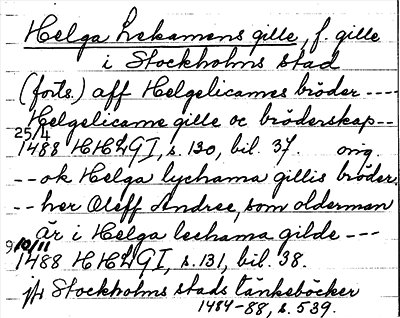 Helga Lekamens gille, f. gille
i Stockholms stad
(forts.) aff Helgelicames bröder ----
Helgelicame gille oc bröderskap --
25/4
1488 HHLGI, s. 130, bil. 37. orig.
-- ok Helga lychama gillis bröder
-- her Oleff Andree, som olderman
är i Helga lechama gilde ---
9 10/11
1488 HHLGI, s. 131, bil. 38.
jfr Stockholms stads tänkeböcker
1484-88, s. 539.